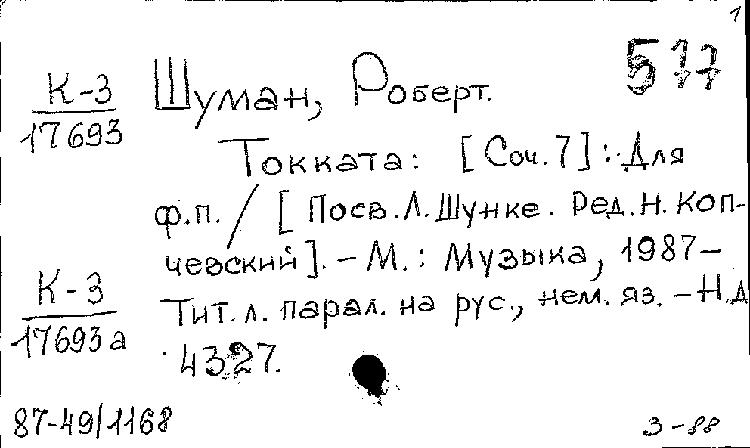 1
577
К-3
17693
Шуман, Роберт.
Токката: [Соч. 7]: Для
ф.п. / [Посв. Л. Шунке. Ред. Н. Коп-
чевский]. - М.: Музыка, 1987-
К-3
17693а
Тит. л. парал. на рус., нем. яз. - Н.д
4327.
87-49/1168
3-88